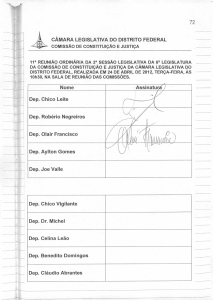 72
CÂMARA LEGISLATIVA DO DISTRITO FEDERAL
COMISSÃO DE CONSTITUIÇÃO E JUSTIÇA
11ª REUNIÃO ORDINÁRIA DA 2ª SESSÃO LEGISLATIVA DA 6ª LEGISLATURA
DA COMISSÃO DE CONSTITUIÇÃO E JUSTIÇA DA CÂMARA LEGISLATIVA DO
DISTRITO FEDERAL, REALIZADA EM 24 DE ABRIL DE 2012, TERÇA-FEIRA, ÀS
10h30, NA SALA DE REUNIÃO DAS COMISSÕES.
Nome Assinatura
Dep. Chico Leite
Dep. Robério Negreiros
Dep. Olair Francisco
Dep. Aylton Gomes
Dep. Joe Valle
Dep. Chico Vigilante
Dep. Dr. Michel
Dep. Celina Leão
Dep. Benedito Domingos
Dep. Cláudio Abrantes